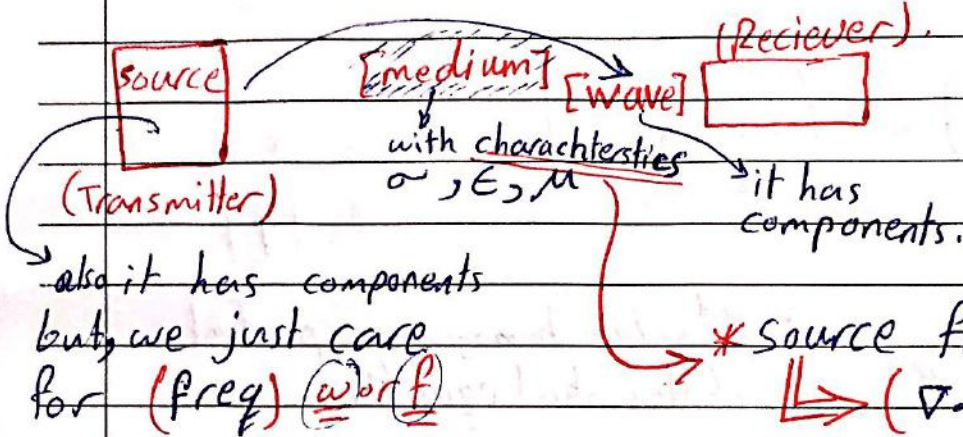 (Reciever).
source
[medium]
[wave]
with charachtersties
σ, ε, μ
(Transmitter)
it has
components.
also it has components
but, we just care
for (freq) ω or f
* Source f
(∇.